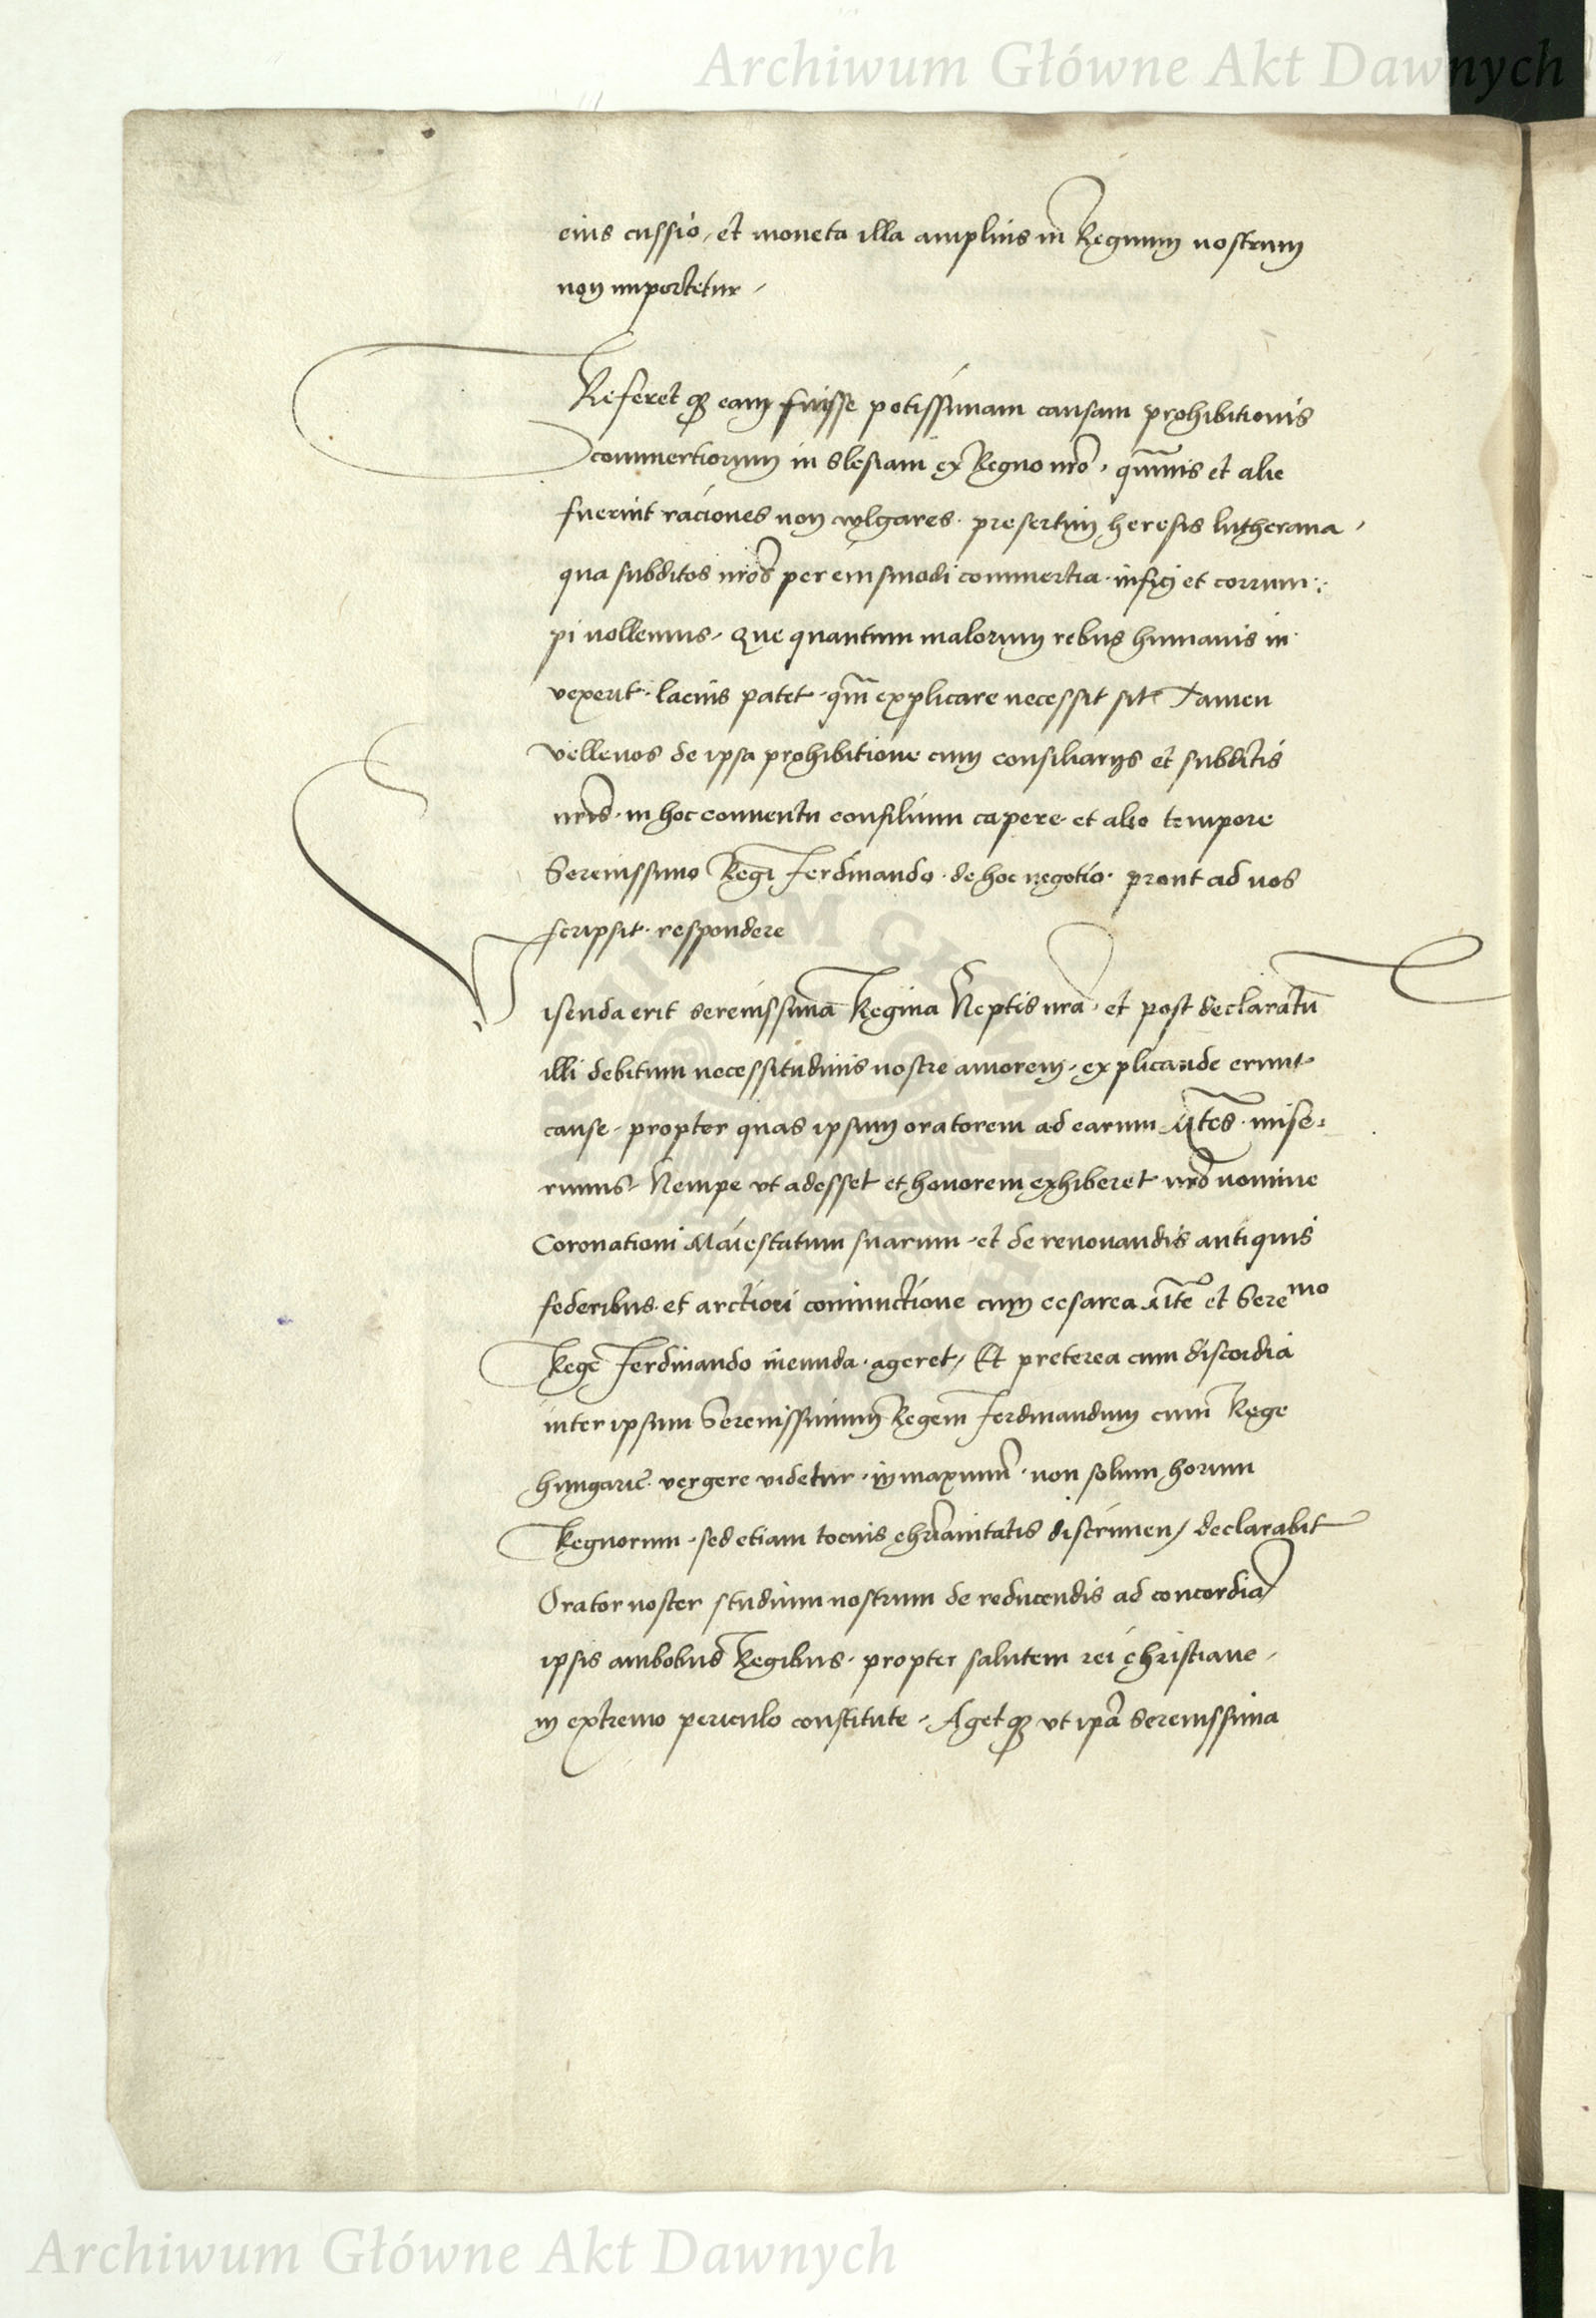 Archiwum Główne Akt Dawnych
eius cussio, et moneta illa amplius in Regnum nostrum
non importetur,
Referet qz eam fuisse potissimam causam prohibitionis
commertiorum in Slesiam ex Regno nro, qmuis et alie
fuerint raciones non vulgares. presertim heresis lutherana,
qua subditos nros per eiusmodi commertia. infici et corrum:
pi nollemus, Que quantum malorum rebus humanis in
vexerit. lacius patet. qm explicare necesse sit. Tamen
velle nos de ipsa prohibitione cum consiliarijs et subditis
nris. in hoc conuentu consilium capere et alio tempore
Serenissimo Regi Ferdinando. de hoc negotio. prout ad nos
scripsit. respondere
Visenda erit serenissima Regina Neptis nra, et post declaratu
illi debitum necessitudinis nostre amorem, explicande erunt
cause, propter quas ipsum oratorem ad earum Mtes. mise:
rimus. Nempe vt adesset et honorem exhiberet nro nomine
Coronationi Maiestatum suarum, et de renouandis antiquis
federibus. et arctiori coniunctione cum cesarea Mte et Sere mo
Rege Ferdinando ineunda. ageret, Et preterea cum discordia
inter ipsum Serenissimum Regem Ferdinandum cum Rege
hungarie. vergere videtur. in maximu. non solum horum
Regnorum. sed etiam tocius chrianitatis discrimen, declarabit
Orator noster studium nostrum de reducendis ad concordia
ipsis ambobus Regibus. propter salutem rei christiane,
in extremo periculo constitute, Aget qz vt ipa Serenissima
Archiwum Główne Akt Dawnych